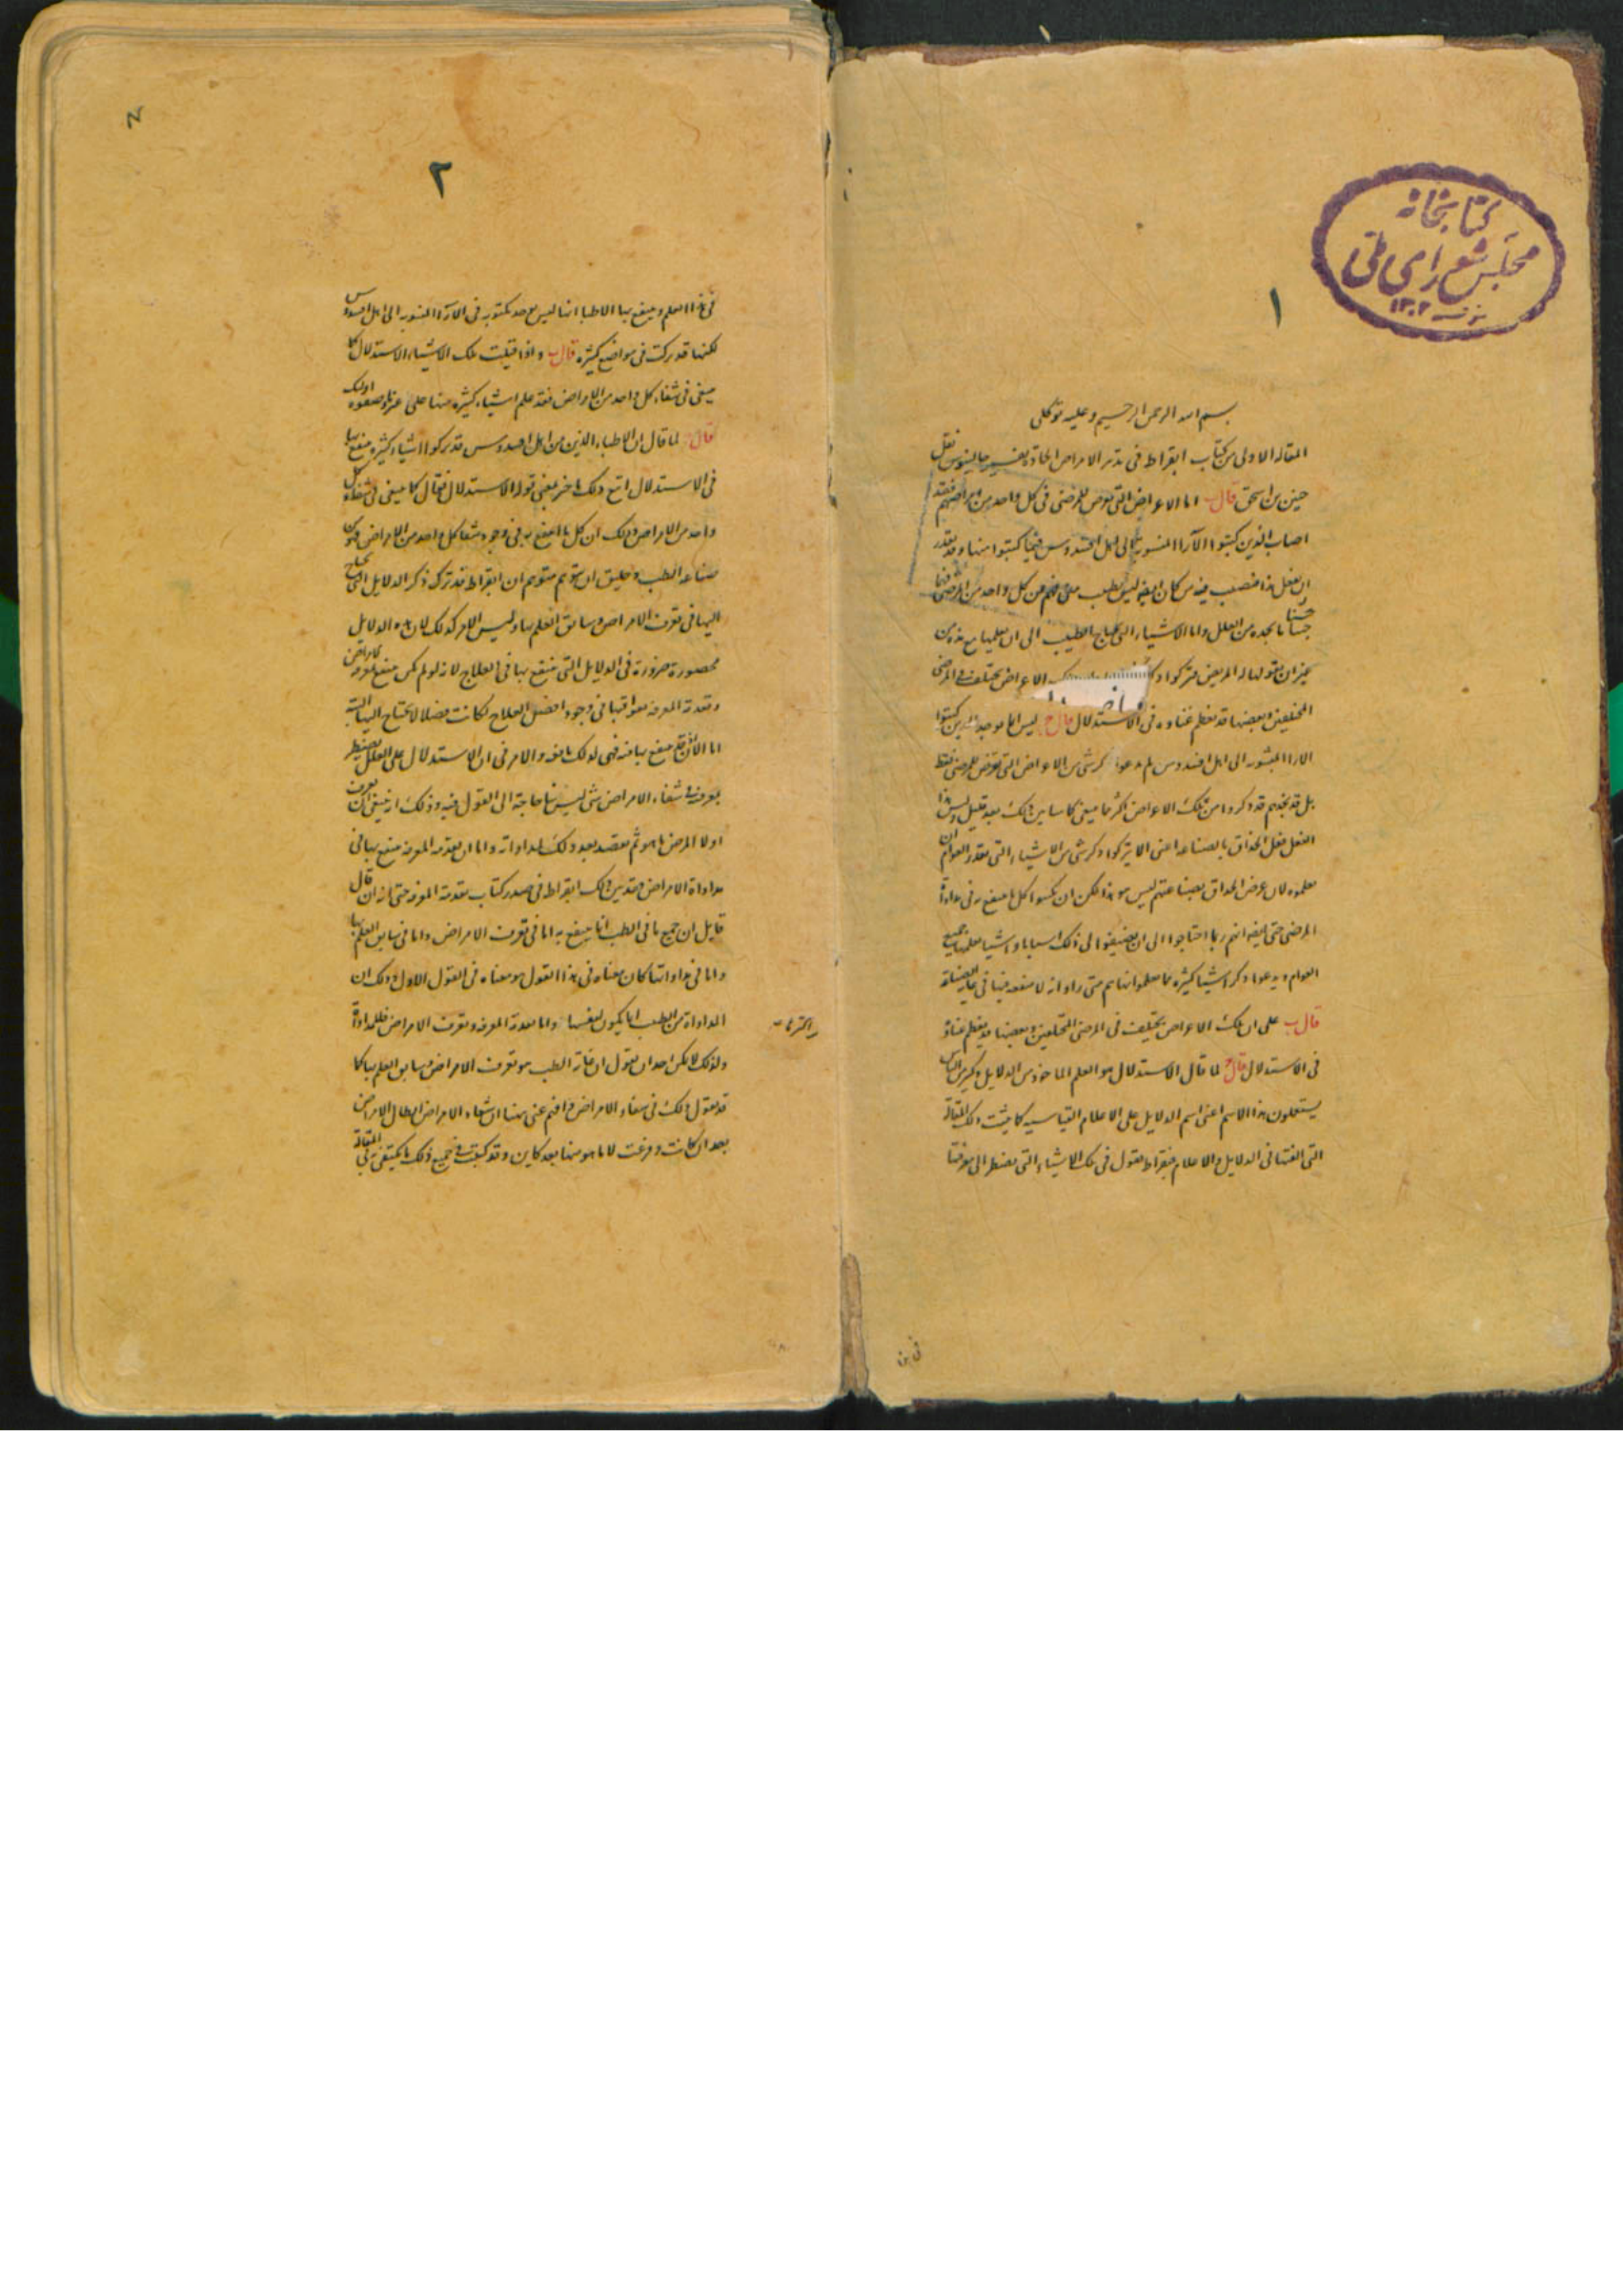 كتابخانه
مجلس شورای ملی
١٣٠٢
١
بسم الله الرحمن الرحيم وعليه توكلى
المقاله الاولى من كتاب ابقراط فى تدبير الامراض الحادة تفسير جالينوس نقل
حنين بن اسحق قال ب اما الاعراض التى تعرض للمرضى فى كل واحد من امراضهم فقد
اصاب الذين كتبوا الآرا المنسوبة الى اهل اقنيدوس فيما كتبوا منها وقد يقدر
ان يفعل هذا فيصيب فيه من كان ايضا ليس بطبيب متى فهم من كل واحد من المرضى فهما
حسنا ما يجده من العلل واما الاشياء التى يحتاج الطبيب الى ان يعلمها من
غير ان يقولها له المريض فتركوا الاعراض يختلف فى المرضى
المختلفين وبعضها قد يعظم غناوه فى الاستدلال قال ج ليس انما يوجد الذين كتبوا
الارا المنسوبه الى اهل اقنيدوس لم يدعوا ذكر شى من الاعراض التى تعرض للمرضى فقط
بل قد نجدهم قد ذكروا من تلك الاعراض اكثر مما ينبغى كما سابين ذلك بعد قليل وليس هذا
الفعل فعل الحذاق بالصناعه اعنى الا يتركوا ذكر شى من الاشياء التى يقدر العوام ان
يعلموه لان غرض الحذاق بصناعتهم ليس هو هذا لكن ان يكتبوا كل ما ينتفع به فى مداواة
المرضى حتى ايضا انهم ربما احتاجوا الى ان يضيفوا الى ذلك اسبابا واشيا يعلمها جميع
العوام ويدعوا ذكر اشيا كثيره مما يعلموا منهم متى راوا انه لا منفعه فيها فى غاية الصناعة
قال ب على ان تلك الاعراض يختلف فى المرضى المختلفين وبعضها قد يعظم غناوه
فى الاستدلال قال ج لما قال الاستدلال هو العلم الماخوذ من الدلايل وكثير من الناس
يستعملون هذا الاسم اعنى اسم الدلايل على الاعلام القياسيه كما بينت ذلك فى المقالة
التى الفتها فى الدلايل والاعلام فبقراط يقول فى تلك الاشياء التى يضطر الى معرفتها
٢
فى هذا العلم وينتفع بها الاطبا انها ليس يوجد مكتوبه فى الآرا المنسوبه الى اهل اقنيدوس
لكنها قد تركت فى مواضع كثيره قال ب واذا قيلت تلك الاشياء الاستدلال كما
ينبغى فى شفاء كل واحد من الامراض فقد علم اشياء كثيره منها على غير ما وصفوه اولئك
قال لما قال ان الاطباء الذين من اهل اقنيدوس قد تركوا اشياء كثيرة ينتفع بها
فى الاستدلال اتبع ذلك باخر يعنى قوله الاستدلال فقال كما ينبغى فى شفاء كل
واحد من الامراض وذلك ان كل ما انتفع به فى وجود شفا كل واحد من الامراض فهو من
صناعه الطب وخليق ان يتوهم متوهم ان ابقراط قد ترك ذكر الدلايل التى يحتاج
اليها فى تعرف الامراض وسابق العلم بها وليس الامر كذلك لان هذه الدلايل
محصورة ضرورة فى الدلايل التى ينتفع بها فى العلاج لانه لو لم يكن ينتفع بتعرف الامراض
وتقدمة المعرفه بعواقبها فى وجود افضل العلاج لكانت فضلا لا يحتاج اليها البته
اما الان فقد ينتفع بها منه فهى لذلك نافعه والامر فى ان الاستدلال على العلل يضطر
بمعرفته فى شفاء الامراض شى ليس بنا حاجة الى القول فيه وذلك انه ينبغى ان يعرف
اولا المرض ما هو ثم يقصد بعد ذلك لمداواته واما ان تقدمه المعرفه ينتفع بها فى
مداواة الامراض فقد بين ذلك ابقراط فى صدر كتاب تقدمة المعرفه حتى انه ان قال
قايل ان جميع ما فى الطب انما ينتفع به اما فى تعرف الامراض واما فى سابق العلم بها
واما فى مداواتها كان معناه فى هذا القول هو معناه فى القول الاول وذلك ان
المداواة من الطب انما يكون لنفسها واما تقدمة المعرفه وتعرف الامراض فللمداواة
ولذلك لا يمكن احد ان يقول ان غاية الطب هو تعرف الامراض وسابق العلم بها كما
قد يقول ذلك فى شفاء الامراض وافهم عنى هنا ان شفاء الامراض ابطال الامراض
بعد ان كانت وفرغت لا ما هو منها بعد كاين وقد كتبت فى جميع ذلك ما يكتفى به فى المقالة